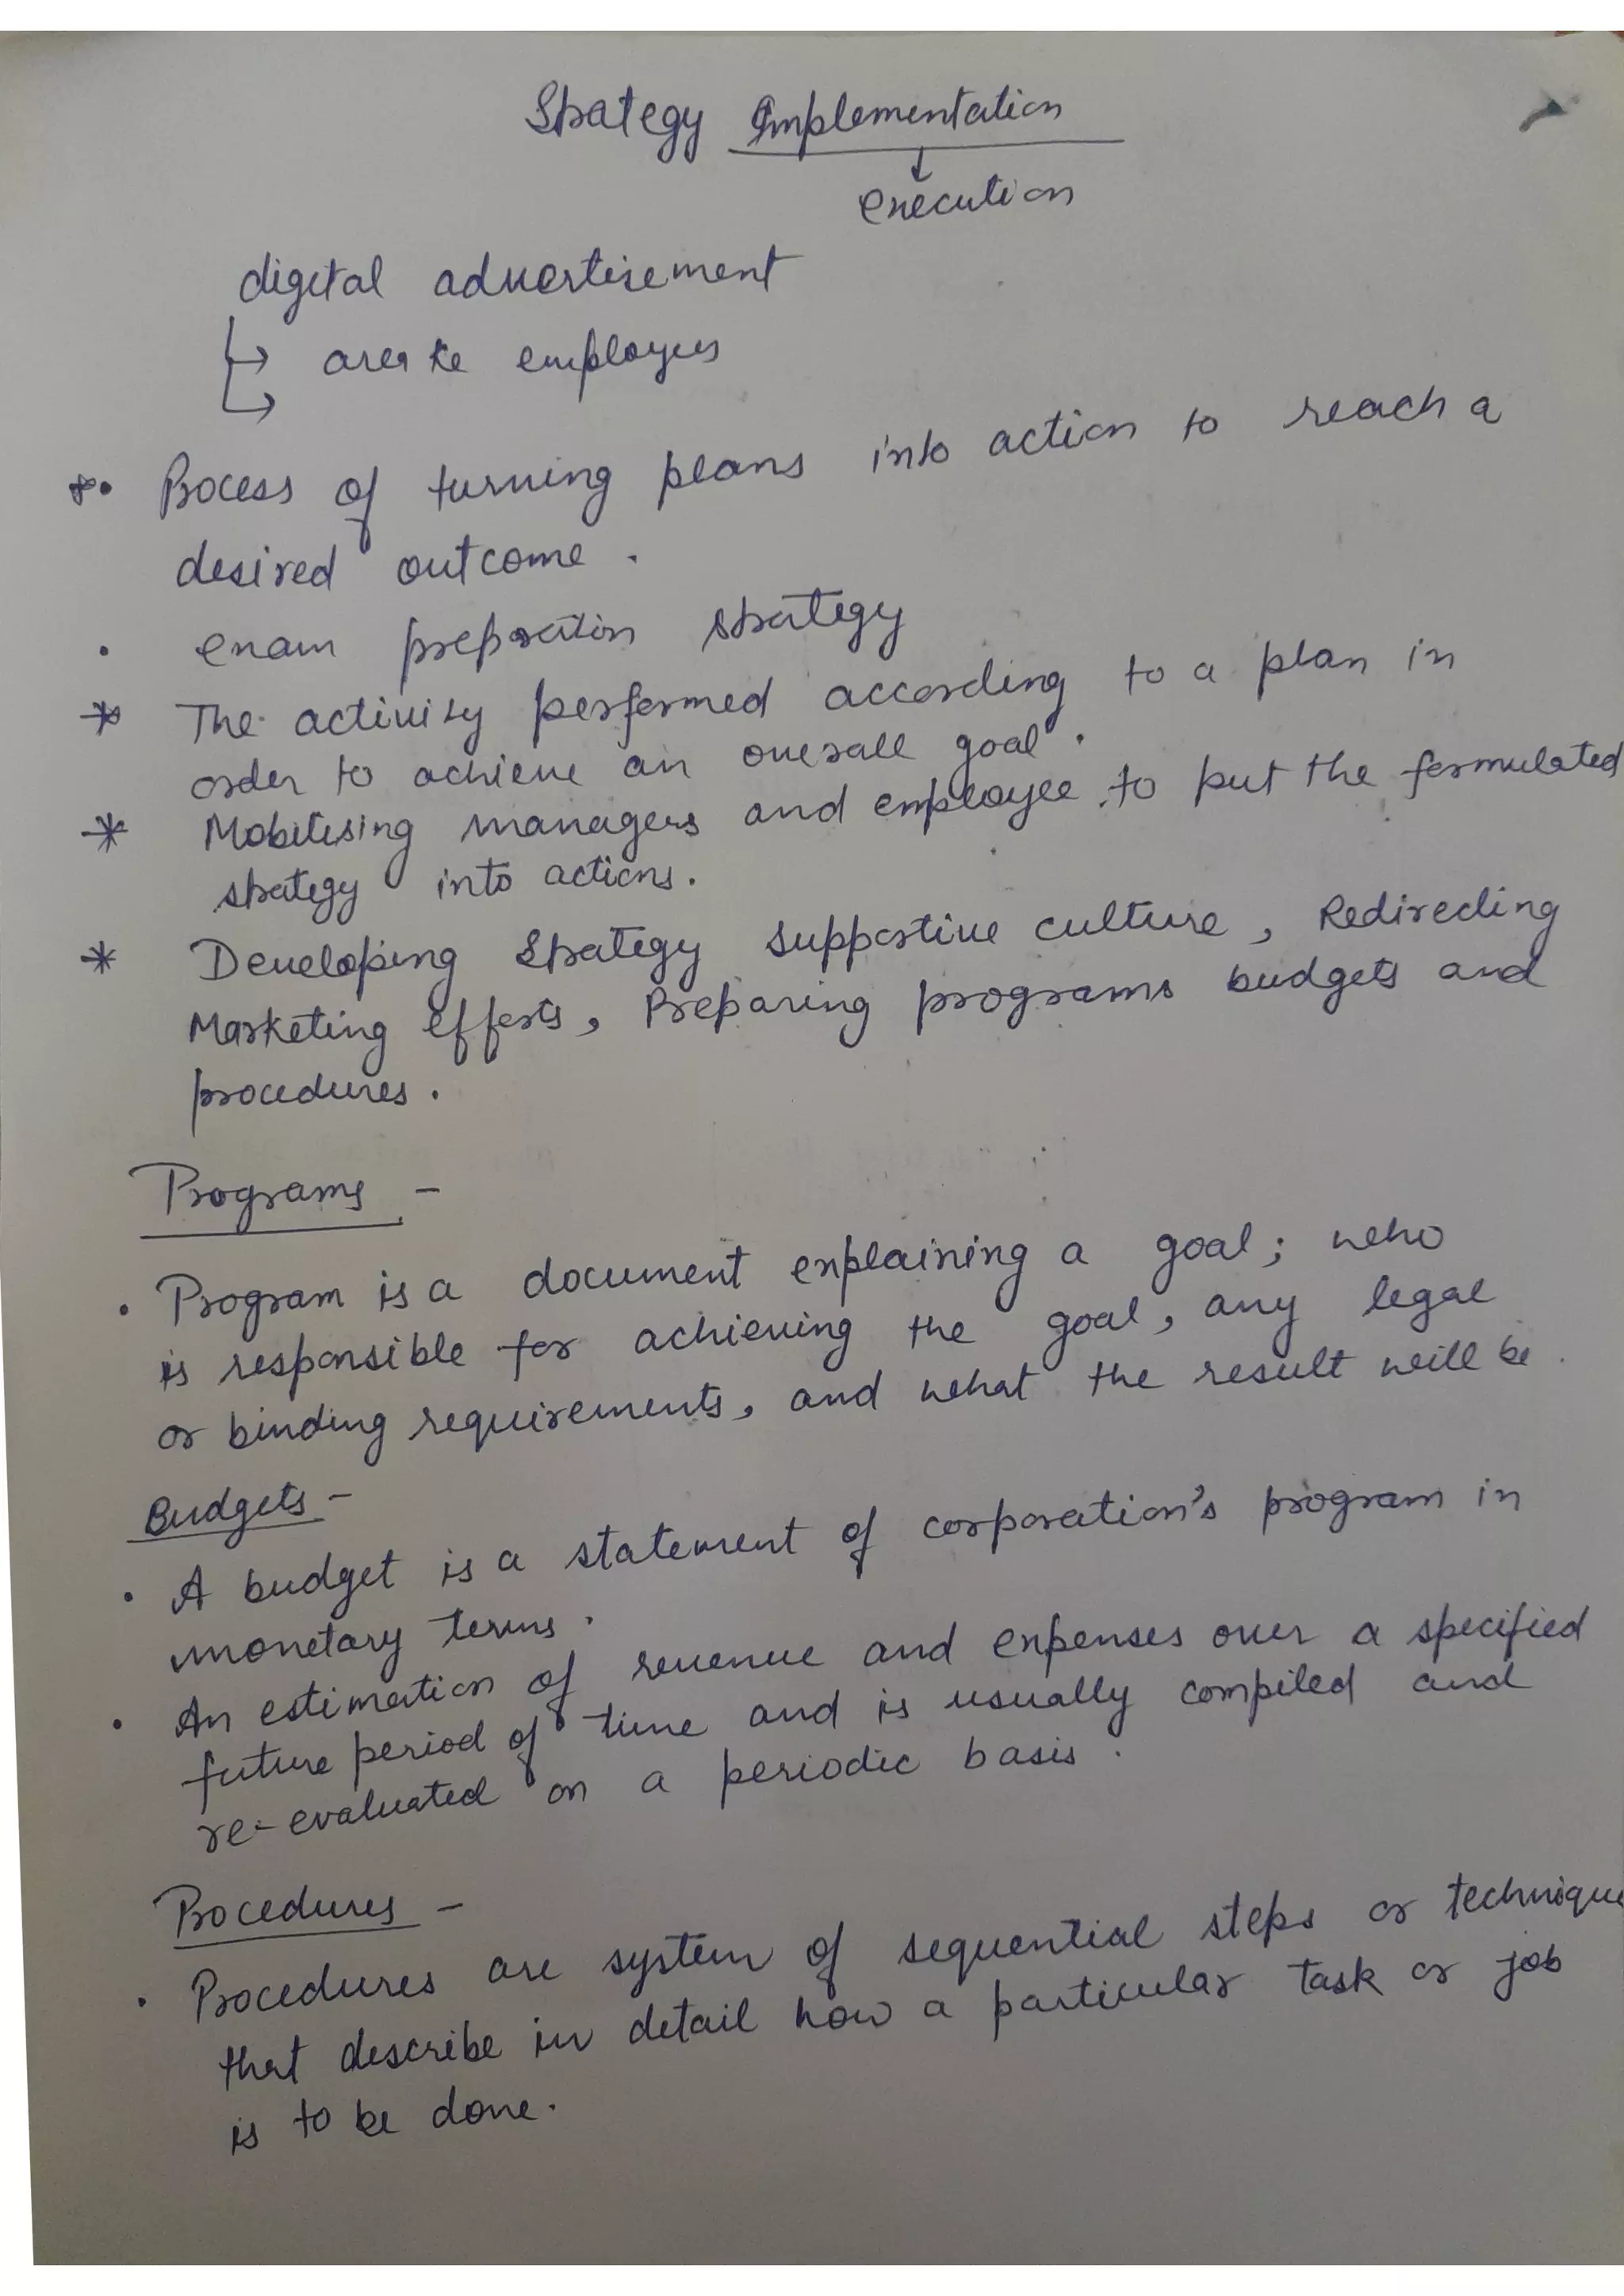 Strategy Implementation
↓
execution
digital advertisement
→ employees
→
* • Process of turning plans into action to reach a
desired outcome.
• exam preparation strategy
* The activity performed according to a plan in
order to achieve an overall goal.
* Mobilising managers and employee to put the formulated
strategy into actions.
* Developing strategy supportive culture, Redirecting
Marketing efforts, Preparing programs budgets and
procedures.
Programs -
• Program is a document explaining a goal; who
is responsible for achieving the goal, any legal
or binding requirements, and what the result will be.
Budgets -
• A budget is a statement of corporation's program in
monetary terms.
• An estimation of revenue and expenses over a specified
future period of time and is usually compiled and
re-evaluated on a periodic basis.
Procedures -
• Procedures are system of sequential steps or technique
that describe in detail how a particular task or job
is to be done.